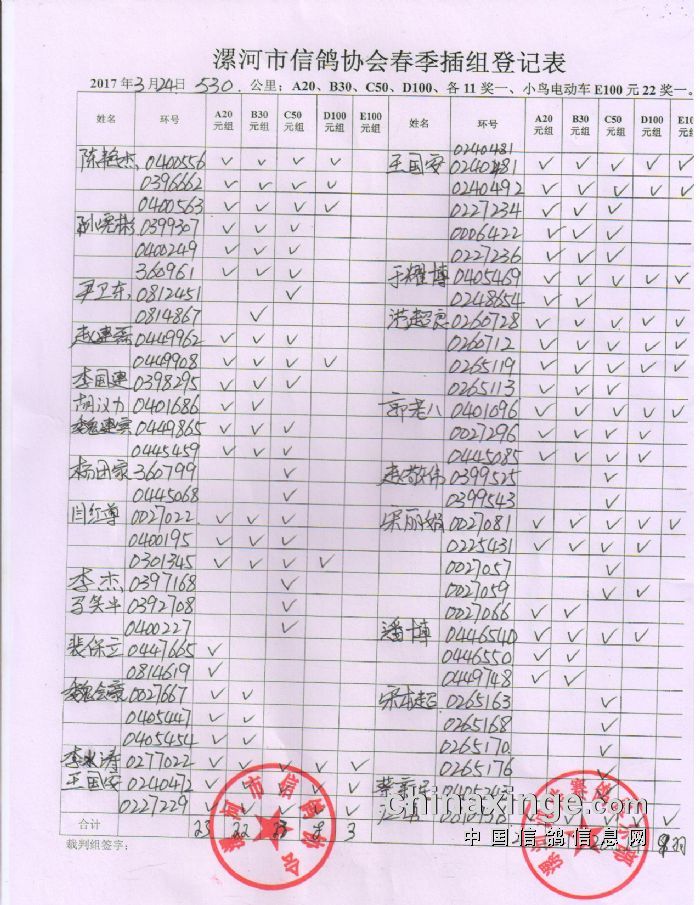 漯河市信鸽协会春季插组登记表
2017年3月24日 530 公里：A20、B30、C50、D100、各11奖一、小鸟电动车E100元22奖一。
姓名 环号 A20元组 B30元组 C50元组 D100元组 E100元组 姓名 环号 A20元组 B30元组 C50元组 D100元组
0240481
陈艳杰 0400556 ✓ ✓ ✓ ✓ 王国安 0240481 ✓ ✓ ✓ ✓ ✓
0396662 ✓ ✓ ✓ ✓ 0240492 ✓ ✓ ✓ ✓ ✓
0400563 ✓ ✓ ✓ ✓ 0227234 ✓ ✓ ✓
0399307 ✓ ✓ ✓ 0006422 ✓ ✓ ✓
0400249 ✓ ✓ ✓ 0227236 ✓ ✓ ✓
360961 ✓ ✓ ✓ 于耀博 0405469 ✓ ✓ ✓ ✓ ✓
尹卫东 0812451 ✓ 0248654 ✓ ✓
0814867 ✓ 洪超良 0260728 ✓ ✓ ✓ ✓ ✓
赵建磊 0449962 ✓ ✓ ✓ 0260712 ✓ ✓ ✓ ✓ ✓
0449908 ✓ ✓ ✓ ✓ 0265119 ✓ ✓ ✓ ✓ ✓
李国建 0398295 ✓ ✓ ✓ 0265113 ✓ ✓ ✓
胡汉力 0401686 ✓ ✓ 郭老八 0401096 ✓ ✓ ✓ ✓ ✓
0449865 ✓ ✓ ✓ 0027296 ✓ ✓ ✓ ✓
0445459 ✓ ✓ ✓ 0445085 ✓ ✓ ✓ ✓
杨田家 360799 ✓ 赵敬伟 0399525 ✓
0445068 ✓ 0399543 ✓
闫红尊 0027022 ✓ ✓ ✓ 宋丽娟 0027081 ✓ ✓ ✓ ✓ ✓
0400195 ✓ ✓ ✓ 0225431 ✓ ✓ ✓ ✓
0301345 ✓ ✓ ✓ ✓ 0027057 ✓
李杰 0397168 ✓ 0027059 ✓ ✓
0392708 ✓ 0027066 ✓ ✓
0400227 ✓ 潘博 0446540 ✓ ✓ ✓ ✓
裴保立 0447665 ✓ 0446550 ✓ ✓
0814619 ✓ 0449748 ✓ ✓
0027667 ✓ ✓ 0265163 ✓
0405447 ✓ ✓ 0265168 ✓
0405454 ✓ ✓ 0265170 ✓
李水涛 0277022 ✓ ✓ ✓ ✓ ✓ 0265176 ✓
王国安 0240472 ✓ ✓ ✓ ✓ ✓ 0405243
0227229 ✓ ✓ ✓ ✓ ✓
合计 23 22 8 3
裁判组签字：
漯河市信鸽协会
chinaxinge.com
中国信鸽信息网